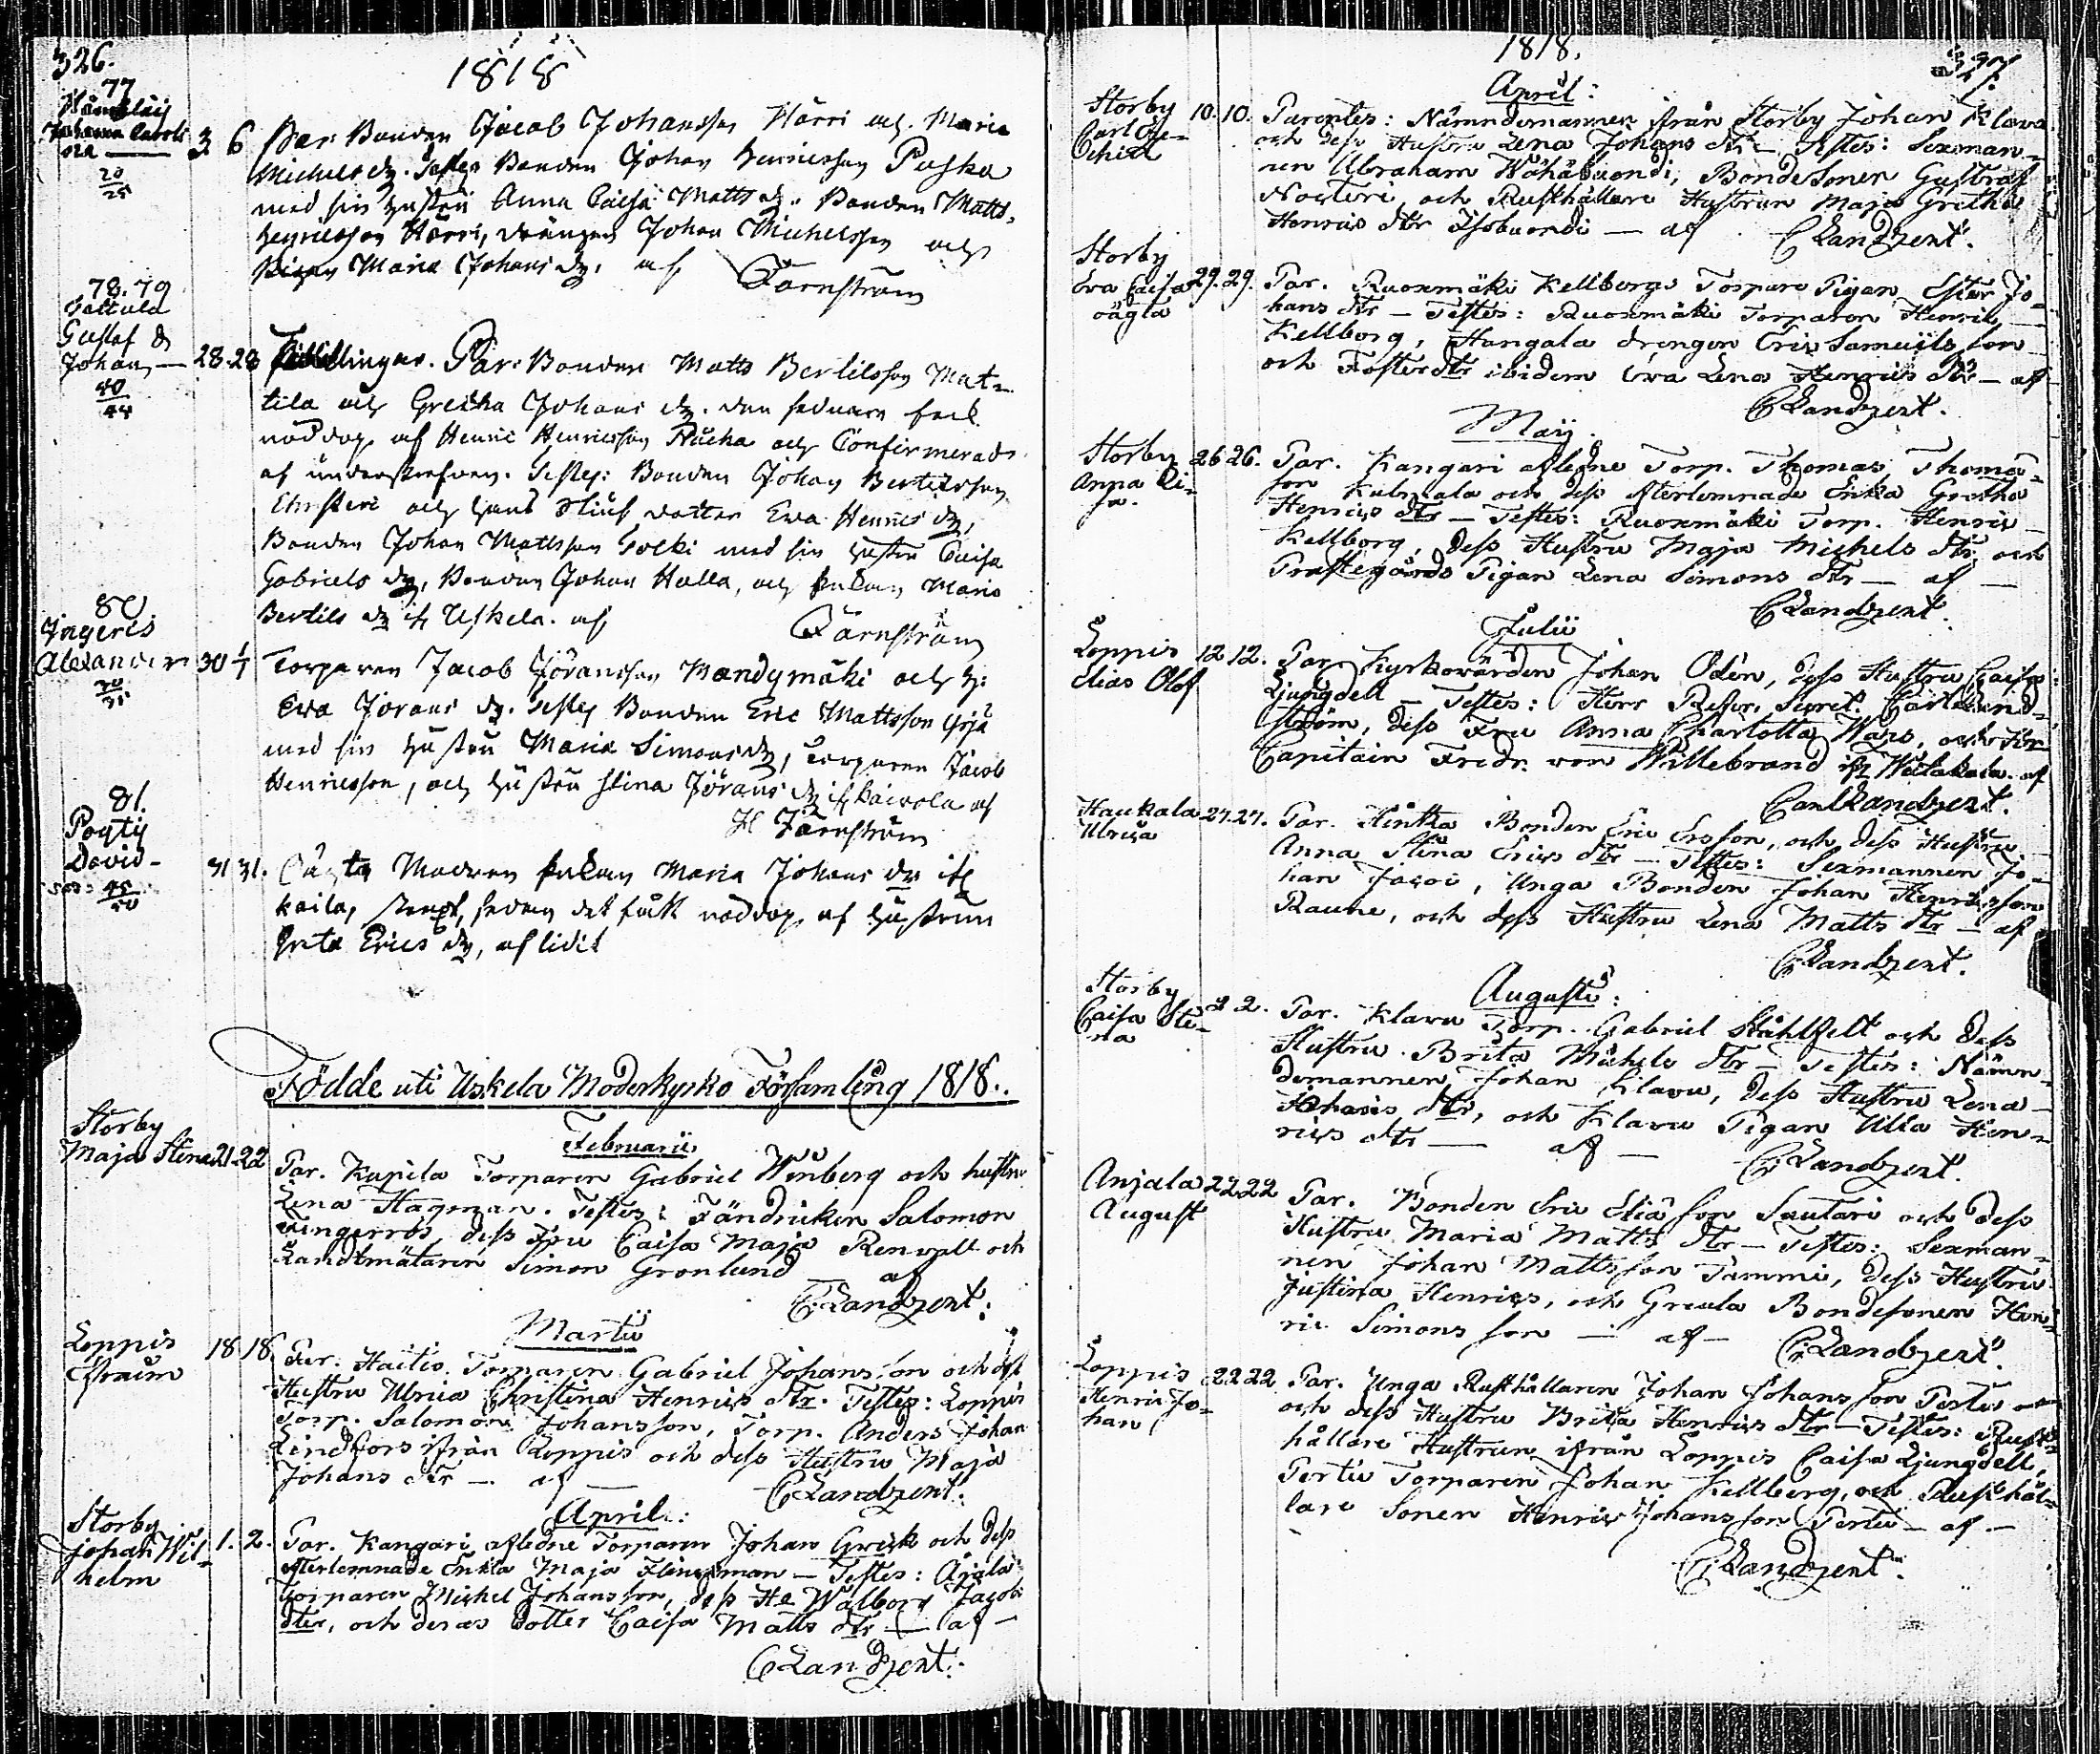 326.
1818
77
Johanna Caroli
na
20
25
3 6 Par: Bonden Jacob Johansson Härri och Maria
Michels dr. Testes Bonden Johan Henricsson Paska
med sin hustru Anna Caisa Matts dr. Bonden Matts
Henricsson Härri, drängen Johan Michelsson och
Pigan Maria Johans dr. af Färnström
78. 79
Gustaf &
Johan
40
44
28. 28 Tvillingar. Par: Bonden Matts Bertilsson Mat-
tila och Gretha Johans dr. den sednare fick
nöddop af Henric Henricsson och Confirmerads
af underskrefven. Testes: Bonden Johan Bertilsson
och hans dotter Ewa Henrics dr,
Bonden Johan Mattsson med sin hustru Caisa
Gabriels dr, Bonden Johan Halla, och Enkan Maria
Bertils dr ifr Uskela. af Färnström
80
Ingeris
Alexander
30
35
30 1/1 Torparen Jacob Jöransson Mandymäki och h:
Ewa Jörans dr. Testes Bonden Eric Mattsson
med sin hustru Maria Simons dr, torparen Jacob
Henricsson, och hustru Stina Jörans dr ifr Kaivola af
H Färnström
81.
Pöytis
David
45
50
31 31. Oägta Modren Enkan Maria Johans dr ifr
Kaila, sedan det fått nöddop af hustrun
Greta Erics dr, aflidit
Födde uti Uskela Moderkyrko Församling 1818.
Februarii
Storby
Maja Stina 21. 22 Par. Kapila Torparen Gabriel Winberg och hustru
Lena Hagman. Testes: Fändricken Salomon
Fingerroos, dess Fru Caisa Maja Renvall och
Landtmätaren Simon Grönlund af
C. Landzent.
Martii
Loppis
Efraim
18 18 Par. Haitis Torparen Gabriel Johansson och dess
Hustru Ulrica Christina Henrics dtr. Testes: Loppis
Torp. Salomon Johansson, Torp. Anders Johan
Lindfors ifrån Loppis och dess Hustru Maja
Johans dtr — af —
C Landzent.
April:
Storby
Johan Wil-
helm
1. 2. Par. Kangari afledne Torparen Johan Grek och dess
efterlemnade Enka Maja Flinckman — Testes: Äjälä
Torparen Michel Johansson, dess He Walborg Jacobs
dter, och deras Dotter Caisa Matts dtr — af —
C Landzent.
1818.
327.
April:
Storby
Carl
10. 10. Parentes: Nämndemannen ifrån Storby Johan Klavu
och dess Hustru Lena Johans dtr — Testes: Sexman-
nen Abraham Wähäkuondi, Bondesonen Gustaf
Nocteri och Rusthållare Hustrun Maja Gretha
Henrics dtr Isokuondi — af C Landzent.
Storby
Eva Caisa
oägta
29. 29. Par. Ruoxmäki Kellbergs Torpare Pigan Ester Jo-
hans dtr — Testes: Ruoxmäki Torparen Henric
Kellborg, Hangala drengen Eric Samuels son
och Fosterdtr ibidem Eva Lena Henrics dtr — af
C Landzent.
Maij.
Storby
Anna Li-
sa.
26 26. Par. Kangari afledne Torp. Thomas Thomæ-
son Kulmala och dess efterlemnade Enka Gretha
Henrics dtr — Testes: Ruoxmäki Torp. Henric
Kellborg, dess Hustru Maja Michels dtr, och
Prästegårds Pigan Lena Simons dtr — af —
C Landzent.
Julii
Loppis
Elias Olof
12 12. Par. Kyrkovärden Johan Odén, dess Hustru Caisa
Ljungdell — Testes: Herr Refer. Secret. Carl Lind-
ström, dess Fru Anna Charlotta Wars, och Hr
Capitain Fredr. von Willebrand ifr Wiilakala. af
Carl Landzent.
Haukala
Ulrica
27. 27. Par. Hintka Bonden Eric Ersson, och dess Hustru
Anna Stina Erics dtr — Testes: Sexmannen Jo-
han Jacoi, Unga Bonden Johan Henricsson
Raune, och dess Hustru Lena Matts dtr — af
C Landzent.
Augusti:
Storby
Caisa Sti-
na
2 2. Par. Klavu Torp. Gabriel Ståhlfelt och dess
Hustru Brita Michels dtr — Testes: Nämn-
demannen Johan Klavu, dess Hustru Lena
Johans dtr, och Klavu Pigan Ulla Hen-
rics dtr — af —
C Landzent.
Anjala
August
22 22 Par. Bonden Eric Eliæ son Sautari och dess
Hustru Maria Matts dtr — Testes: Sexman-
nen Johan Mattsson Tammi, dess Hustru
Justina Henrics, och Greula Bondesonen Hen-
ric Simons son — af —
C Landzent.
Loppis
Henric Jo-
han
22 22 Par. Unga Rusthållaren Johan Johansson Perttu
och dess Hustru Brita Henrics dtr — Testes: Rust-
hållare Hustrun ifrån Loppis Caisa Ljungdell,
Perttu Torparen Johan Kellberg, och Rusthål-
lare Sonen Henric Johansson Perttu — af —
C Landzent.